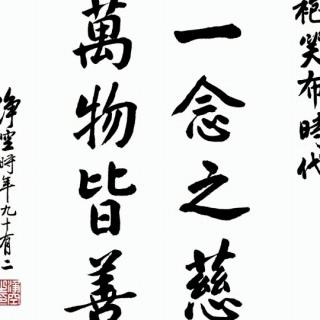 袍笑布時代
一念之慈
萬物皆善
淨空時年九十有二